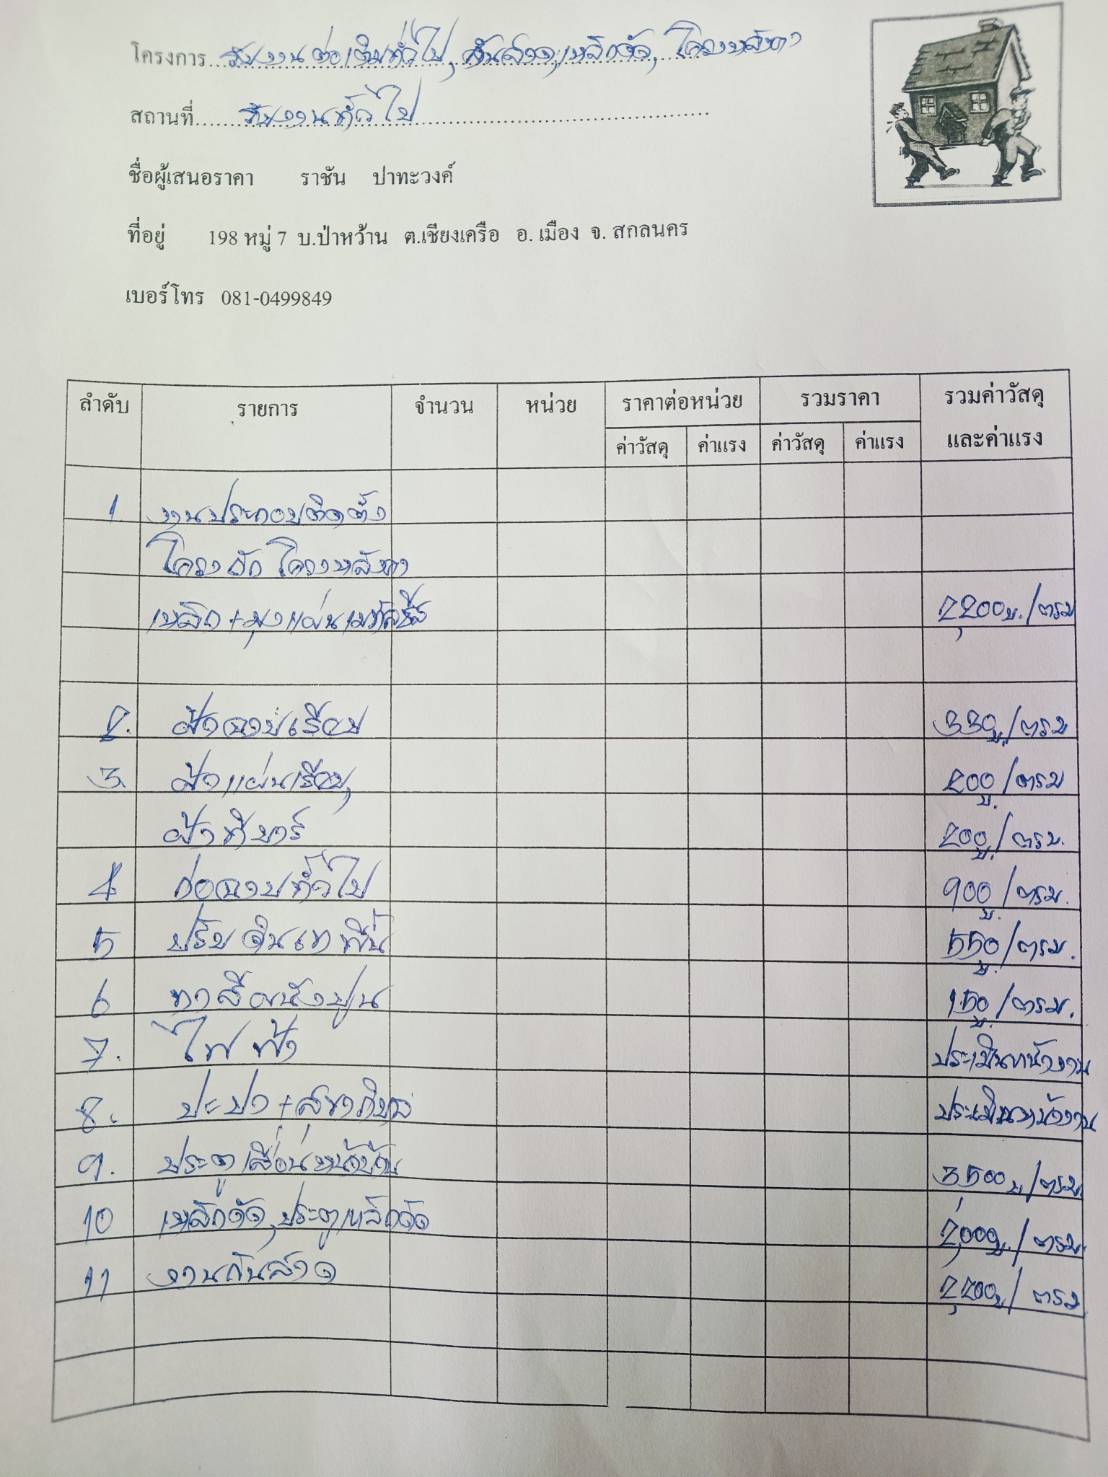 โครงการ รับงาน ต่อเติมทั่วไป, กันสาด, เหล็กดัด, โครงหลังคา
สถานที่ รับงานทั่วไป
ชื่อผู้เสนอราคา ราชัน ปาทะวงค์
ที่อยู่ 198 หมู่ 7 บ.ป่าหว้าน ต.เชียงเครือ อ. เมือง จ. สกลนคร
เบอร์โทร 081-0499849
ลำดับ รายการ จำนวน หน่วย ราคาต่อหน่วย รวมราคา รวมค่าวัสดุ
ค่าวัสดุ ค่าแรง ค่าวัสดุ ค่าแรง และค่าแรง
1 งานประกอบติดตั้ง
โครงถัก โครงหลังคา
เหล็ก + มุงแผ่นเมทัลชีส 2,200บ./ตรม
2. ฝ้าฉาบเรียบ 330บ./ตรม
3. ฝ้าแผ่นเรียบ, 200บ./ตรม
ฝ้าทีบาร์ 200บ./ตรม.
4 ก่อฉาบทั่วไป 900บ./ตรม.
5 ปรับดินเทพื้น 550บ./ตรม.
6 ทาสีผนังปูน 150บ./ตรม.
7. ไฟฟ้า ประเมินหน้างาน
8. ประปา + สุขาภิบาล ประเมินหน้างาน
9. ประตูเลื่อนหน้าบ้าน 3,500บ/ตรม
10 เหล็กดัด, ประตูเหล็กดัด 2,000บ./ตรม.
11 งานกันสาด 2,200บ/ตรม